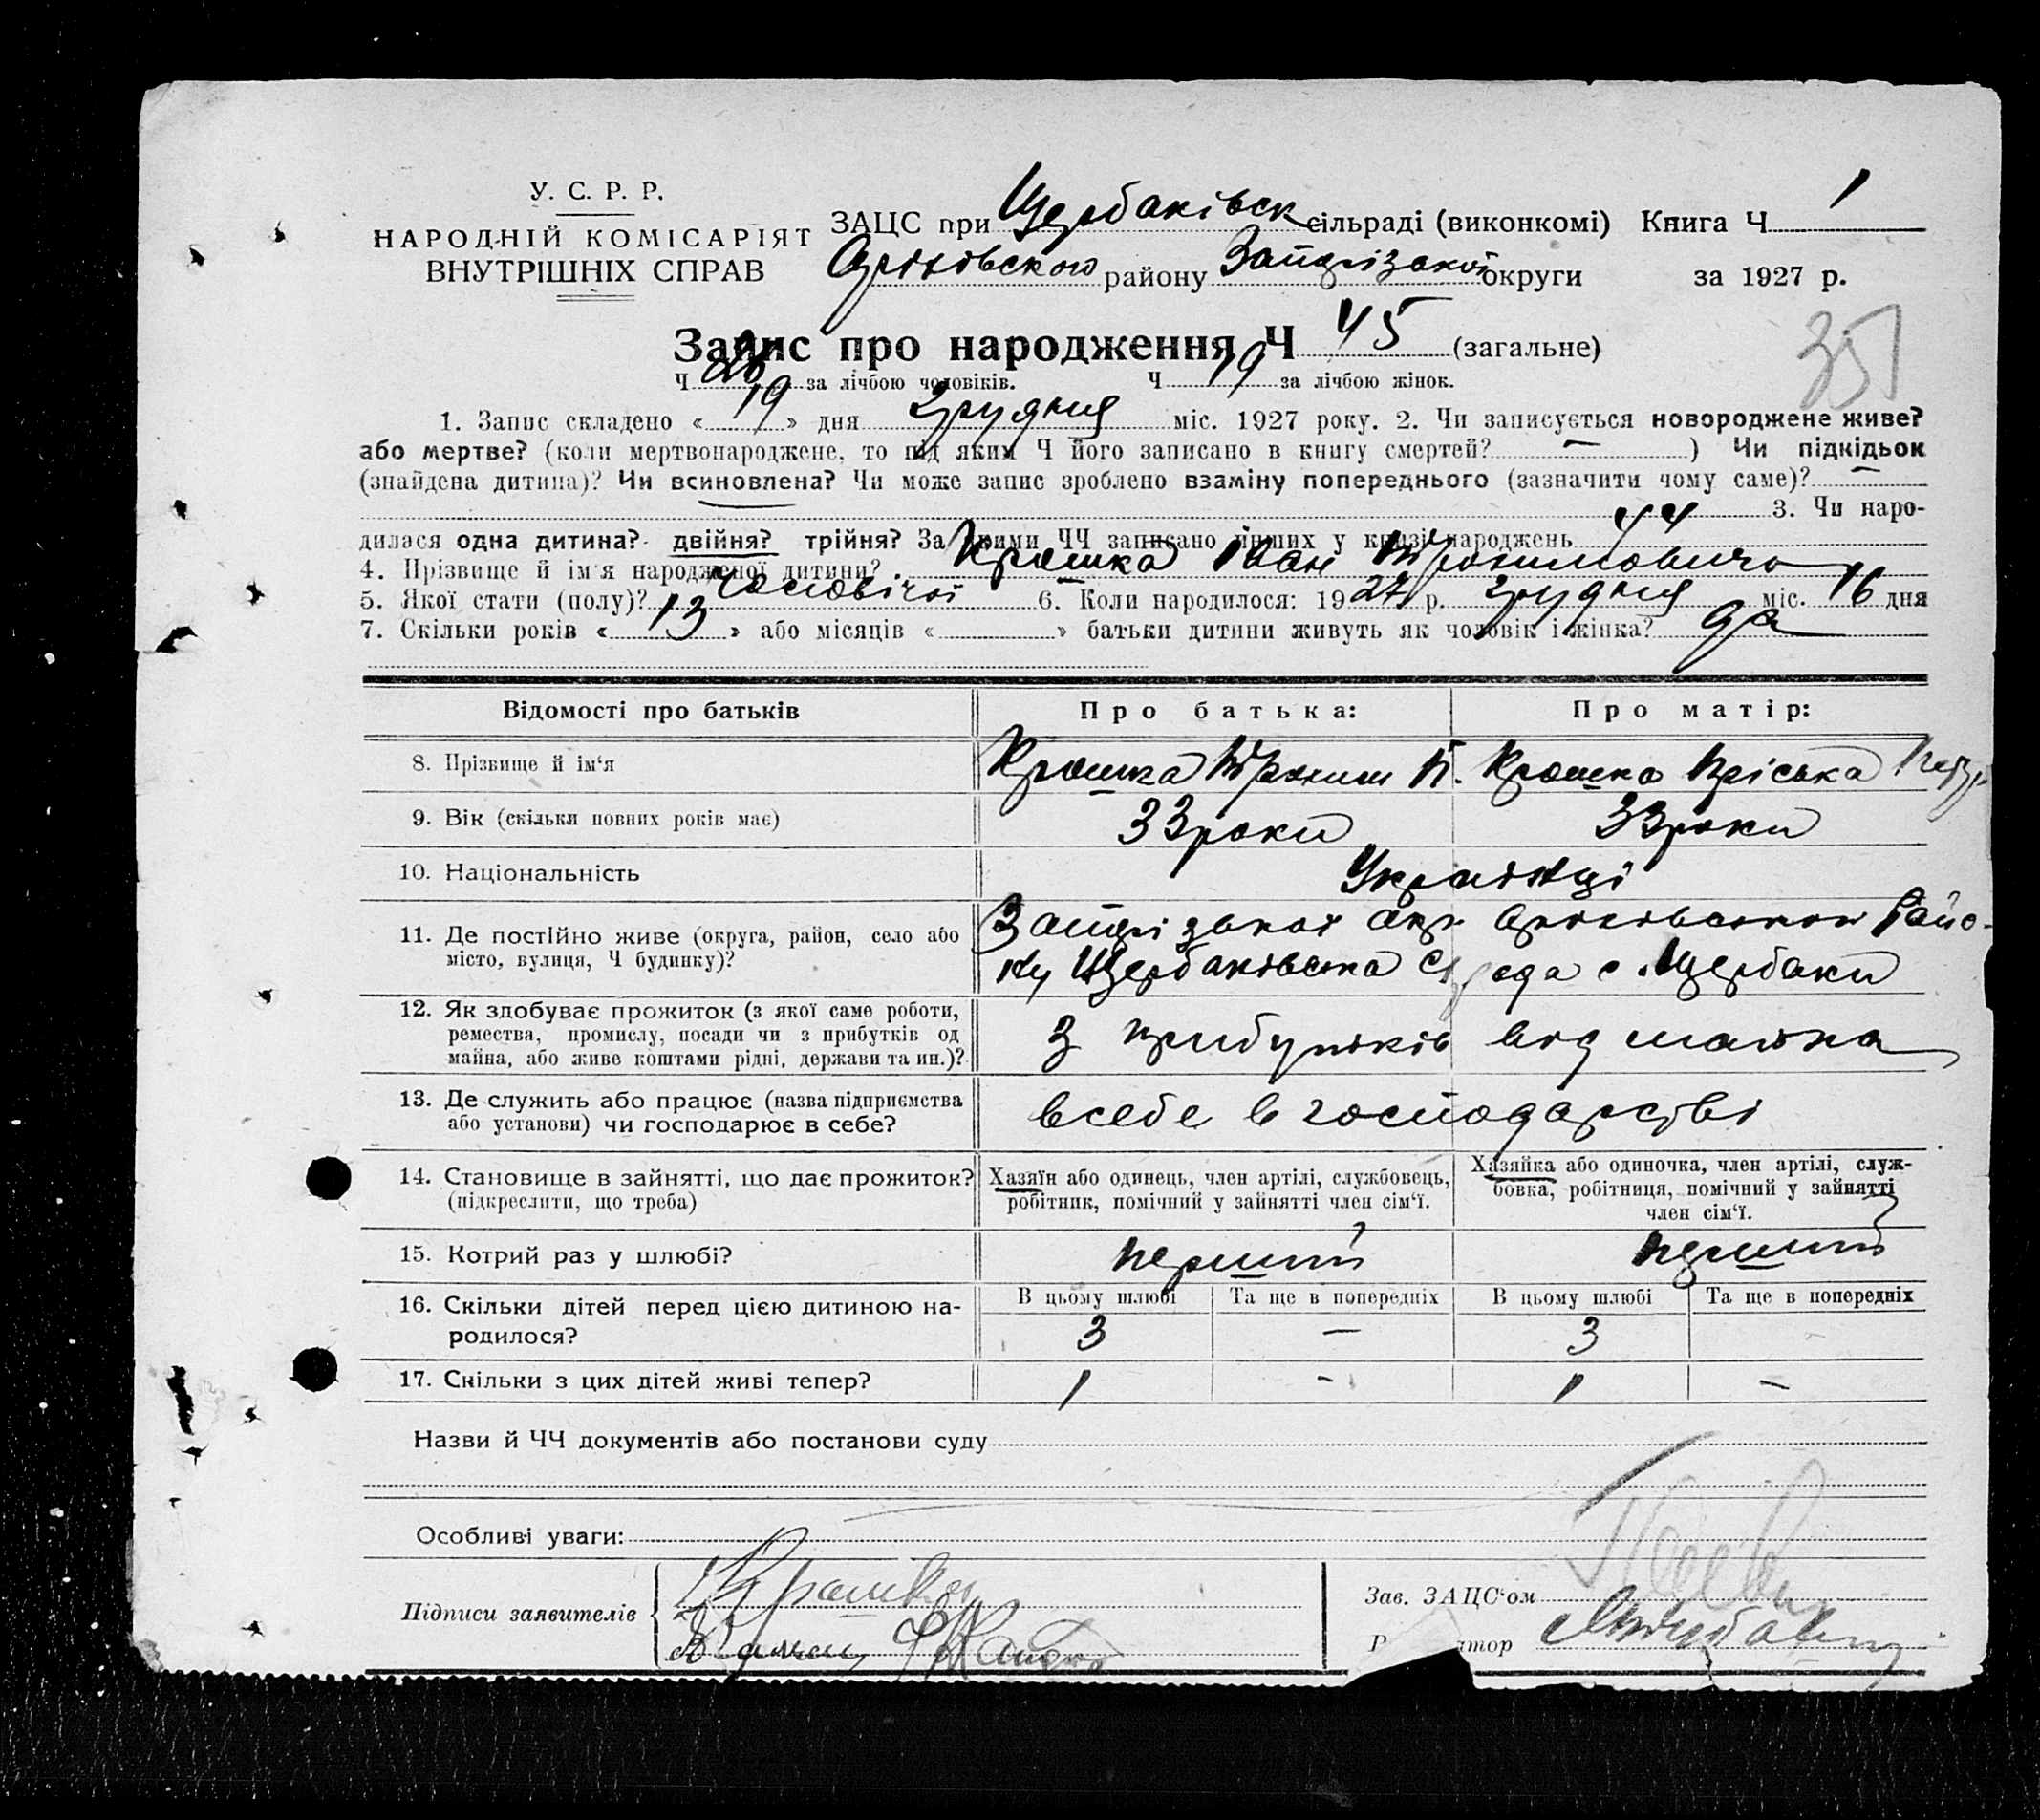 У. С. Р. Р.
НАРОДНІЙ КОМІСАРІЯТ
ВНУТРІШНІХ СПРАВ
ЗАЦС при Щербаківск сільраді (виконкомі) Книга Ч 1
Оріхівського району Запорізької округи за 1927 р.
Запис про народження Ч 45 (загальне)
351
Ч 26 за лічбою чоловіків. Ч 19 за лічбою жінок.
1. Запис складено « 19 » дня Грудня міс. 1927 року. 2. Чи записується новороджене живе?
або мертве? (коли мертвонароджене, то під яким Ч його записано в книгу смертей? — ) Чи підкідьок
(знайдена дитина)? Чи всиновлена? Чи може запис зроблено взаміну попереднього (зазначити чому саме)? —
3. Чи наро-
дилася одна дитина? двійня? трійня? За якими ЧЧ записано інших у книзі народжень 44
4. Прізвище й ім'я народженої дитини? Крошка Іван Трохимович
5. Якої стати (полу)? чоловічої 6. Коли народилося: 1927 р. грудня міс. 16 дня
7. Скільки років « 13 » або місяців « » батьки дитини живуть як чоловік і жінка? да
Відомості про батьків Про батька: Про матір:
8. Прізвище й ім'я Крошка Трохим П. Крошка Пріська
9. Вік (скільки повних років має) 33 роки 33 роки
10. Національність Українці
11. Де постійно живе (округа, район, село або Запорізької окр. Оріхівського Райо-
місто, вулиця, Ч будинку)? ну Щербаківська с/рада с. Щербаки
12. Як здобуває прожиток (з якої саме роботи,
ремества, промислу, посади чи з прибутків од з прибутків від майна
майна, або живе коштами рідні, держави та ин.)?
13. Де служить або працює (назва підприємства всебе в господарстві
або установи) чи господарює в себе?
14. Становище в зайнятті, що дає прожиток? Хазяїн або одинець, член артілі, службовець, Хазяйка або одиночка, член артілі, служ-
(підкреслити, що треба) робітник, помічний у зайнятті член сім'ї. бовка, робітниця, помічний у зайнятті
член сім'ї.
15. Котрий раз у шлюбі? перший перший
16. Скільки дітей перед цією дитиною на- В цьому шлюбі Та ще в попередніх В цьому шлюбі Та ще в попередніх
родилося? 3 — 3
17. Скільки з цих дітей живі тепер? 1 - 1 -
Назви й ЧЧ документів або постанови суду
Особливі уваги:
Підписи заявителів
Зав. ЗАЦС'ом